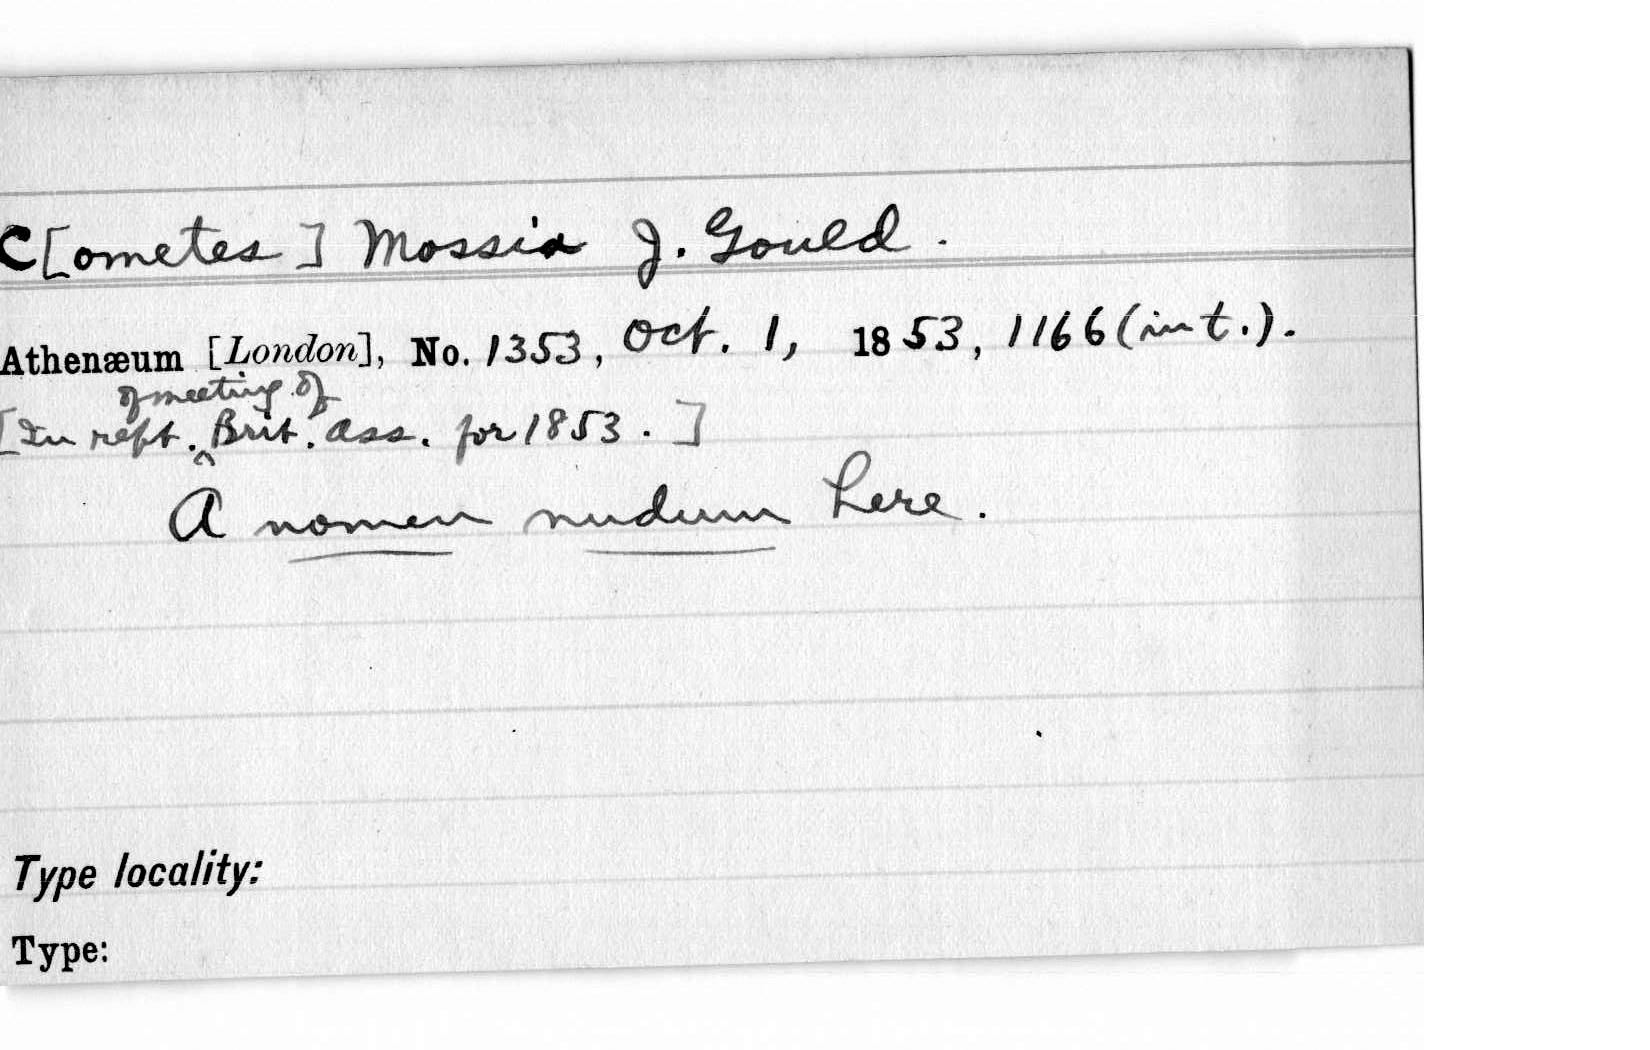 C[ometes] Mossia J. Gould.
Athenæum [London], No. 1353, Oct. 1, 1853, 1166 (int.).
of meeting of
[In rept. ^ Brit. Ass. for 1853.]
A nomen nudum here.
Type locality:
Type: